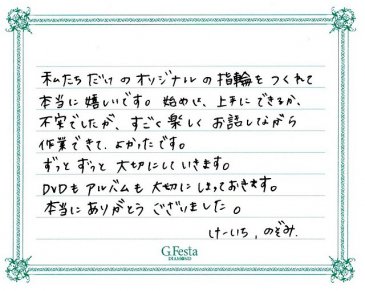 私たちだけのオリジナルの指輪をつくれて
本当に嬉しいです。始めは、上手にできるか、
不安でしたが、すごく楽しくお話しながら
作業できて、よかったです。
ずっとずっと大切にしていきます。
DVDもアルバムも大切にしまっておきます。
本当にありがとうございました。
けーいち、のぞみ.
G.Festa
DIAMOND